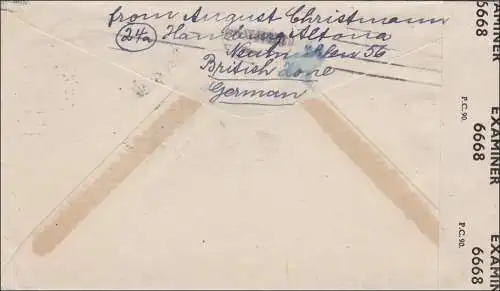 from August Christmann
24a Hamburg Altona
Neumühlen 56
British Zone
German
EXAMINER
6668
P.C. 90.
EXAMINER
6668
P.C. 90.
EXAMINER
6668